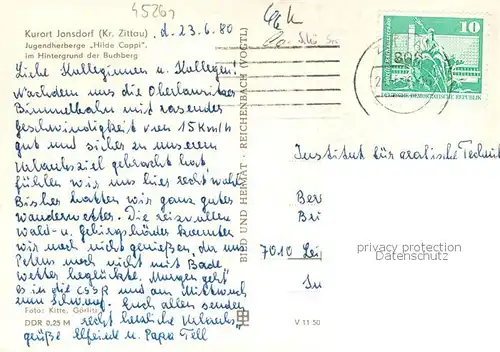 45269
Kurort Jonsdorf (Kr. Zittau)
Jugendherberge „Hilde Coppi“,
im Hintergrund der Buchberg
d. 23.6.80
Liebe Kolleginnen u. Kollegen!
Nachdem uns die Oberlausitzer
Bimmelbahn mit rasender
Geschwindigkeit von 15 Km/h
gut und sicher zu unserem
Urlaubsziel gebracht hat,
fühlen wir uns hier recht wohl.
Bisher hatten wir ganz gutes
Wanderwetter. Die reizvollen
Wald- u. Gebirgsbäder konnten
wir noch nicht genießen, da uns
Petrus noch nicht mit Bade
wetter beglückte. Morgen geht
es in die CSSR und am Mittwoch
zum
Euch allen senden
recht herzliche Urlaubs-
grüße Elfriede u. Papa Tell
Foto: Kitte, Görlitz
DDR 0,25 M
BILD UND HEIMAT · REICHENBACH (VOGTL)
V 11 50
10
DEUTSCHE DEMOKRATISCHE REPUBLIK
Institut für
Technik
Ber
7010 Lei
In
watermark protection
oldthing.de